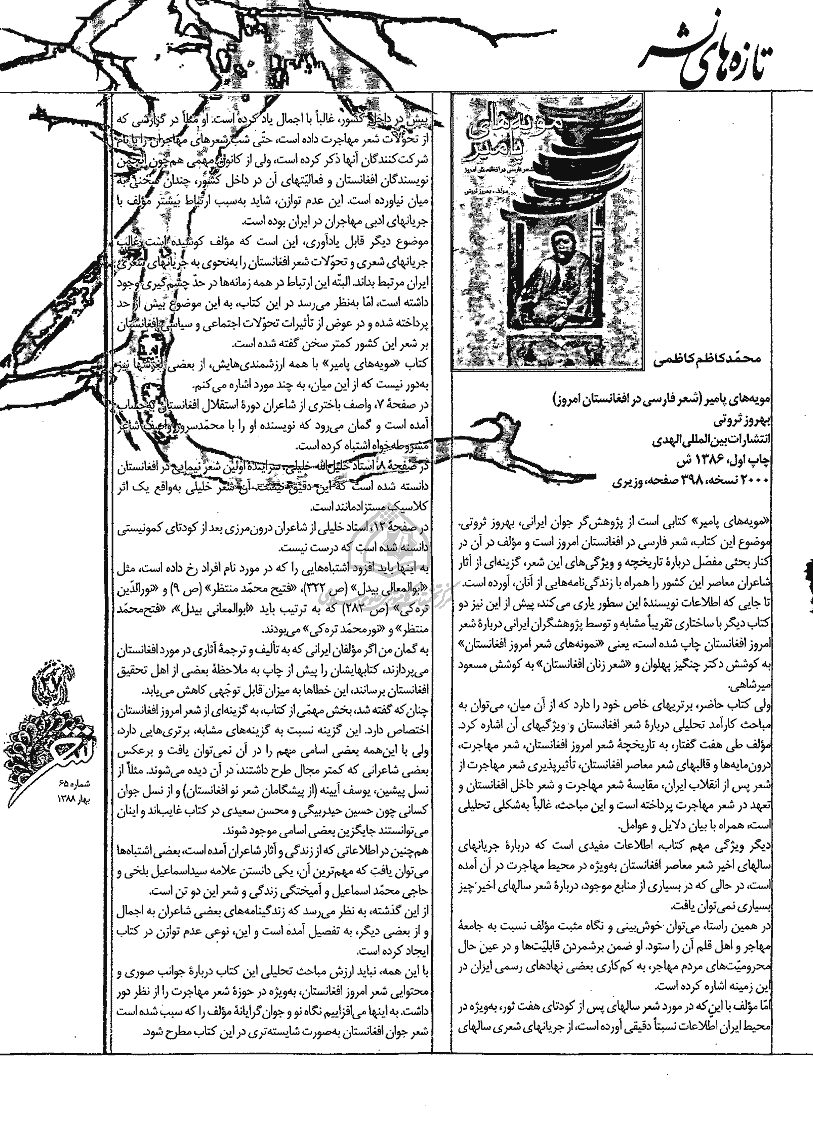 تازه‌های نشر
مویه‌های
پامیر
محمّدکاظم کاظمی
مویه‌های پامیر (شعر فارسی در افغانستان امروز)
بهروز ثروتی
انتشارات بین‌المللی الهدی
چاپ اول، ۱۳۸۶ ش
۲۰۰۰ نسخه، ۳۹۸ صفحه، وزیری
«مویه‌های پامیر» کتابی است از پژوهش‌گر جوان ایرانی، بهروز ثروتی.
موضوع این کتاب، شعر فارسی در افغانستان امروز است و مؤلف در آن در
کنار بحثی مفصّل دربارهٔ تاریخچه و ویژگی‌های این شعر، گزینه‌ای از آثار
شاعران معاصر این کشور را همراه با زندگی‌نامه‌هایی از آنان، آورده است.
تا جایی که اطلاعات نویسندهٔ این سطور یاری می‌کند، پیش از این نیز دو
کتاب دیگر با ساختاری تقریباً مشابه و توسط پژوهشگران ایرانی دربارهٔ شعر
امروز افغانستان چاپ شده است، یعنی «نمونه‌های شعر امروز افغانستان»
به کوشش دکتر چنگیز پهلوان و «شعر زنان افغانستان» به کوشش مسعود
میرشاهی.
ولی کتاب حاضر، برتریهای خاص خود را دارد که از آن میان، می‌توان به
مباحث کارآمد تحلیلی دربارهٔ شعر افغانستان و ویژگیهای آن اشاره کرد.
مؤلف طی هفت گفتار، به تاریخچهٔ شعر امروز افغانستان، شعر مهاجرت،
درون‌مایه‌ها و قالبهای شعر معاصر افغانستان، تأثیرپذیری شعر مهاجرت از
شعر پس از انقلاب ایران، مقایسهٔ شعر مهاجرت و شعر داخل افغانستان و
تعهد در شعر مهاجرت پرداخته است و این مباحث، غالباً به‌شکلی تحلیلی
است، همراه با بیان دلایل و عوامل.
دیگر ویژگی مهم کتاب، اطلاعات مفیدی است که دربارهٔ جریانهای
سالهای اخیر شعر معاصر افغانستان به‌ویژه در محیط مهاجرت در آن آمده
است، در حالی که در بسیاری از منابع موجود، دربارهٔ شعر سالهای اخیر چیز
بسیاری نمی‌توان یافت.
در همین راستا، می‌توان خوش‌بینی و نگاه مثبت مؤلف نسبت به جامعهٔ
مهاجر و اهل قلم آن را ستود. او ضمن برشمردن قابلیّت‌ها و در عین حال
محرومیّت‌های مردم مهاجر، به کم‌کاری بعضی نهادهای رسمی ایران در
این زمینه اشاره کرده است.
امّا مؤلف با این‌که در مورد شعر سالهای پس از کودتای هفت ثور، به‌ویژه در
محیط ایران اطّلاعات نسبتاً دقیقی آورده است، از جریانهای شعری سالهای
پیش در داخل کشور، غالباً با اجمال یاد کرده است. او مثلاً در گزارشی که
از تحوّلات شعر مهاجرت داده است، حتّی شب شعرهای مهاجران را با نام
شرکت‌کنندگان آنها ذکر کرده است، ولی از کانون مهمّی هم‌چون انجمن
نویسندگان افغانستان و فعالیّتهای آن در داخل کشور، چندان سخنی به
میان نیاورده است. این عدم توازن، شاید به‌سبب ارتباط بیشتر مؤلف با
جریانهای ادبی مهاجران در ایران بوده است.
موضوع دیگر قابل یادآوری، این است که مؤلف کوشیده است غالب
جریانهای شعری و تحوّلات شعر افغانستان را به‌نحوی به جریانهای شعری
ایران مرتبط بداند. البتّه این ارتباط در همه زمانه‌ها در حدّ چشم‌گیری وجود
داشته است، امّا به‌نظر می‌رسد در این کتاب، به این موضوع بیش از حد
پرداخته شده و در عوض از تأثیرات تحوّلات اجتماعی و سیاسی افغانستان
بر شعر این کشور کمتر سخن گفته شده است.
کتاب «مویه‌های پامیر» با همه ارزشمندی‌هایش، از بعضی لغزشها نیز
به‌دور نیست که از این میان، به چند مورد اشاره می‌کنم.
در صفحهٔ ۷، واصف باختری از شاعران دورهٔ استقلال افغانستان به‌حساب
آمده است و گمان می‌رود که نویسنده او را با محمّدسرور واصف شاعر
مشروطه‌خواه اشتباه کرده است.
در صفحهٔ ۸، استاد خلیل‌الله خلیلی، سرایندهٔ اولین شعر نیمایی در افغانستان
دانسته شده است که این دقیق نیست. آن شعر خلیلی به‌واقع یک اثر
کلاسیک مستزادمانند است.
در صفحهٔ ۱۲، استاد خلیلی از شاعران درون‌مرزی بعد از کودتای کمونیستی
دانسته شده است که درست نیست.
به اینها باید افزود اشتباه‌هایی را که در مورد نام افراد رخ داده است، مثل
«ابوالمعالی بیدل» (ص ۳۲۲)، «فتیح محمّد منتظر» (ص ۹) و «نورالدّین
تره‌کی» (ص ۲۸۳) که به ترتیب باید «ابوالمعانی بیدل»، «فتح‌محمّد
منتظر» و «نورمحمّد تره‌کی» می‌بودند.
به گمان من اگر مؤلفان ایرانی که به تألیف و ترجمهٔ آثاری در مورد افغانستان
می‌پردازند، کتابهایشان را پیش از چاپ به ملاحظهٔ بعضی از اهل تحقیق
افغانستان برسانند، این خطاها به میزان قابل توجّهی کاهش می‌یابد.
چنان‌که گفته شد، بخش مهمّی از کتاب، به گزینه‌ای از شعر امروز افغانستان
اختصاص دارد. این گزینه نسبت به گزینه‌های مشابه، برتری‌هایی دارد،
ولی با این‌همه بعضی اسامی مهم را در آن نمی‌توان یافت و برعکس
بعضی شاعرانی که کمتر مجال طرح داشتند، در آن دیده می‌شوند. مثلاً از
نسل پیشین، یوسف آیینه (از پیشگامان شعر نو افغانستان) و از نسل جوان
کسانی چون حسین حیدربیگی و محسن سعیدی در کتاب غایب‌اند و اینان
می‌توانستند جایگزین بعضی اسامی موجود شوند.
هم‌چنین در اطلاعاتی که از زندگی و آثار شاعران آمده است، بعضی اشتباه‌ها
می‌توان یافت که مهم‌ترین آن، یکی دانستن علامه سیداسماعیل بلخی و
حاجی محمّد اسماعیل و آمیختگی زندگی و شعر این دو تن است.
از این گذشته، به نظر می‌رسد که زندگینامه‌های بعضی شاعران به اجمال
و از بعضی دیگر، به تفصیل آمده است و این، نوعی عدم توازن در کتاب
ایجاد کرده است.
با این همه، نباید ارزش مباحث تحلیلی این کتاب دربارهٔ جوانب صوری و
محتوایی شعر امروز افغانستان، به‌ویژه در حوزهٔ شعر مهاجرت را از نظر دور
داشت. به اینها می‌افزاییم نگاه نو و جوان‌گرایانهٔ مؤلف را که سبب شده است
شعر جوان افغانستان به‌صورت شایسته‌تری در این کتاب مطرح شود.
شماره ۶۵
بهار ۱۳۸۸